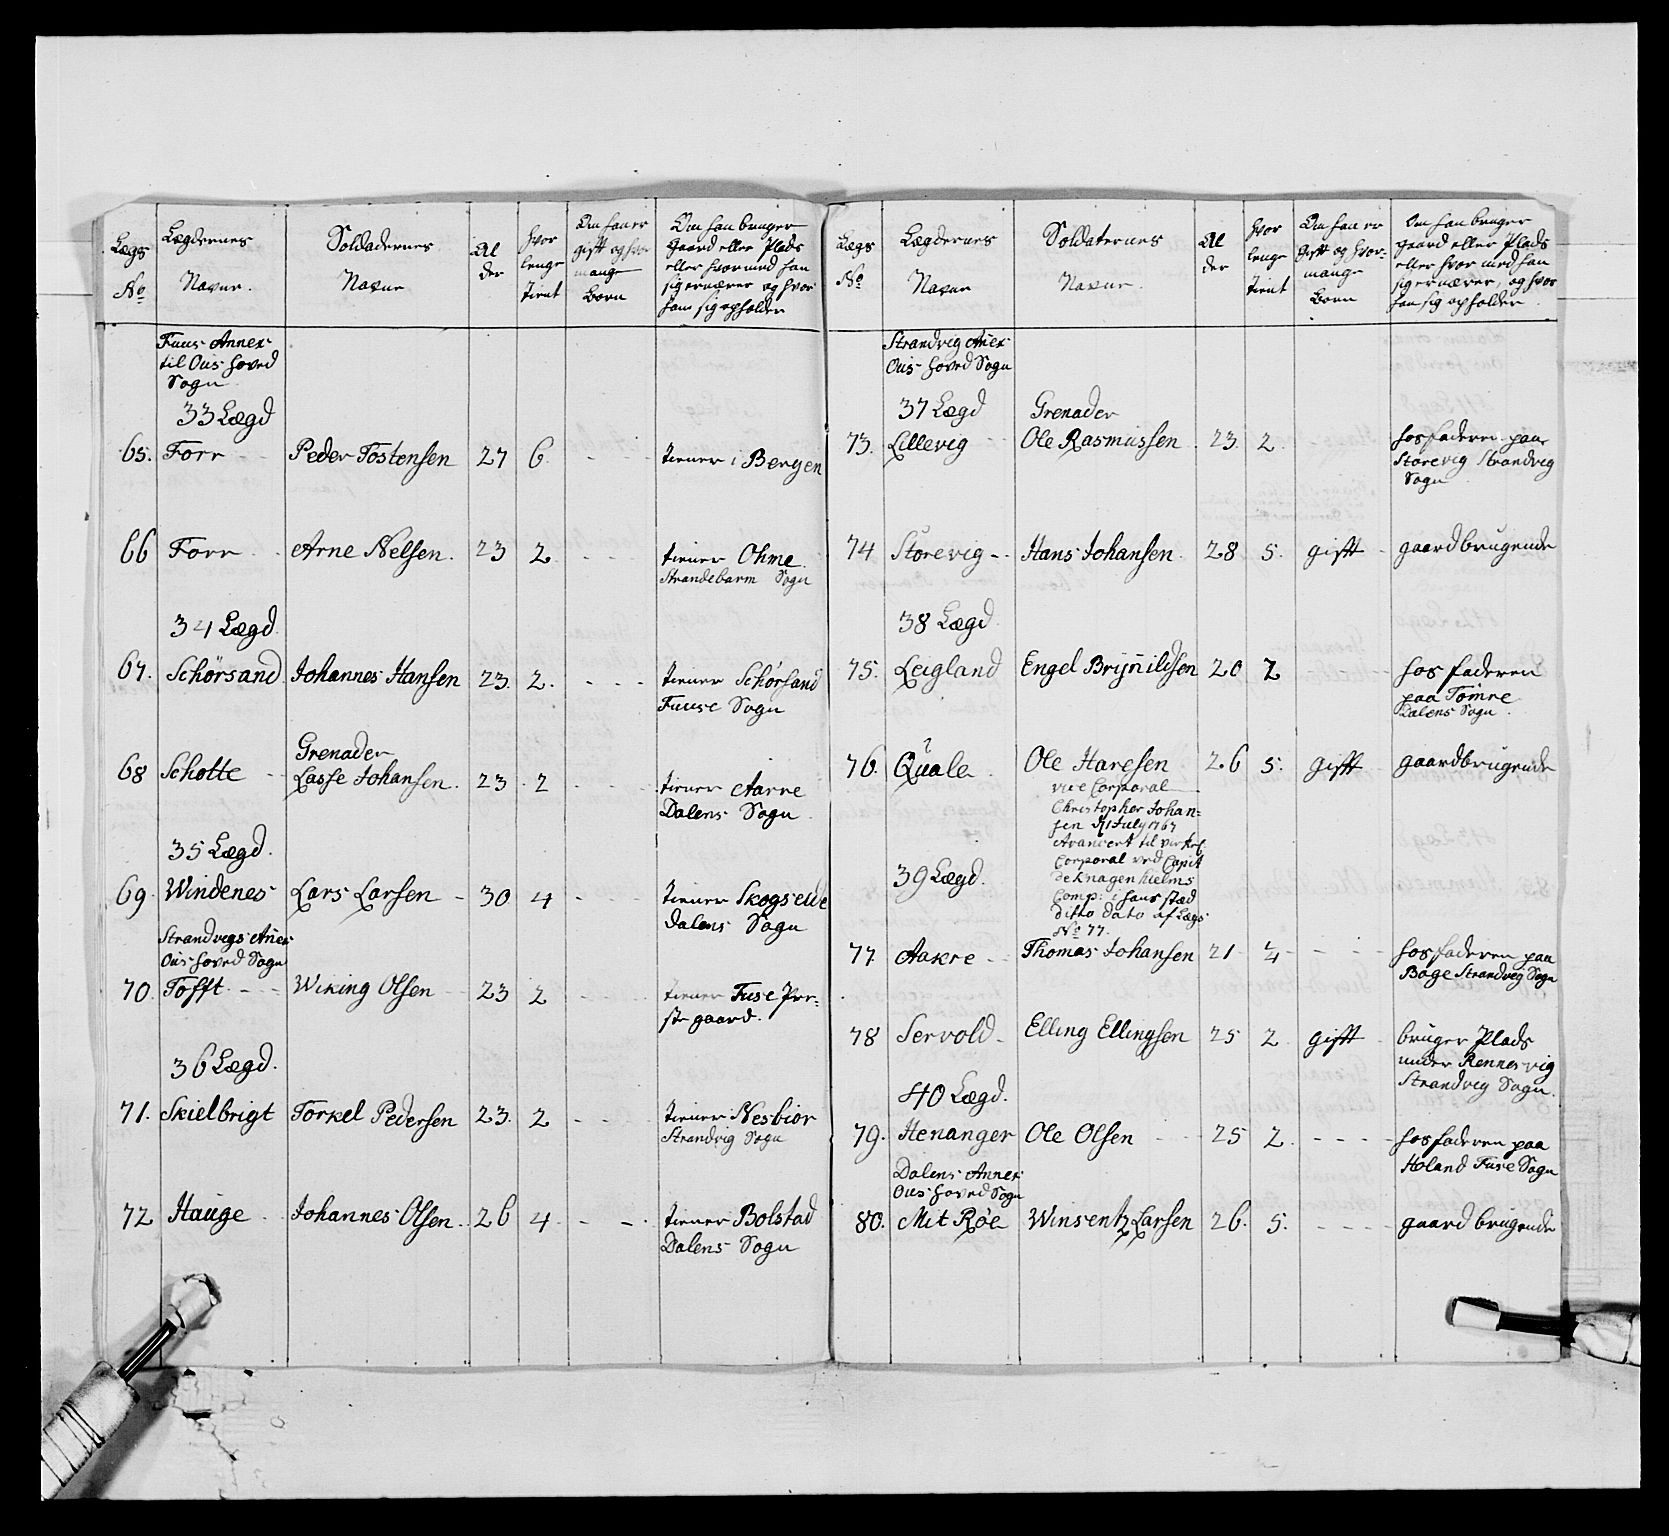 Lægs No
Lægdernes Navne.
Soldadernes Navne
Alder
hvor lenge tient
Om han er gift og hvor mange Børn
Om han bruger Gaard eller Plads eller hvormed han sig ernærer og hvor han sig opholder
Fuus Annex
til Ous hoved
Sogn
33 Lægd
65. Forr - - Peder Tostensen 27 6. - - tiener i Bergen
66 Forr - Arne Nelsen. 23 2. - - tiener Ohme
Strandebarm Sogn
34 Lægd
67. Schørsand. Johannes Hansen 23. 2. - - - tiener Schørsand
Fuuse Sogn
Grenader
68 Schotte - - Lasse Johansen. 23. 2 - - - tiener Aarre
Dalens Sogn.
35 Lægd.
69. Windenes Lars Larsen - 30 4 - - - tiener Skogseide
Dalens Sogn
Strandvigs Anex
Ous hoved Sogn
70. Tofft - - Wiking Olsen 23 2 - - tiener Fuse Pre-
stegaard.
36 Lægd.
71. Skielbrigt Torkel Pedersen 23. 2 - - - tiener Nesbiør
Strandvig Sogn
72 Hauge - Johannes Olsen. 26 4 - - - tiener Bolstad
Dalens Sogn
Lægs No
Lægdernes Navne
Soldaternes Navne.
Alder
hvor lenge tient
Om han er Gift og hvor mange Born
Om han bruger gaard eller Plads eller hvor med han sig ernærer, og hvor han sig opholder
Strandvig Anex
Ous hoved Sogn
37 Lægd
Grenader
73. Lillevig - - Ole Rasmussen 23. 2. - hos faderen paa
Storevig Strandvig
Sogn
74 Storevig - - Hans Johansen 28 5. gift - gaardbrugende
38 Lægd
75. Leigland Engel Brynildsen 20 2 - - - hos faderen
paa Tømre
Dalens Sogn.
76. Quale. Ole Haresen 26 5. gift - gaardbrugende
vice Corporal
Christopher Johan-
sen 1 July 1767
Avancert til virkel
Corporal ved Capit
de Knagenhielms
Comp: i hans stæd
ditto dato af Lægs
No 77.
39 Lægd.
77. Aakre - - Thomas Johansen 21 4 - - - hos faderen paa
Boge Strandvig Sogn
78 Servold - Elling Ellingsen 25 2 gift - bruger Plads
under Rennesvig
Strandvig Sogn.
40 Lægd.
79. Henanger Ole Olsen - - 25 2. - - - - hos faderen paa
Holand Fuse Sogn
Dalens Annex
Ous hoved Sogn
80. Mit Røe Winsentz Larsen 26. 5. - - - - gaard brugende